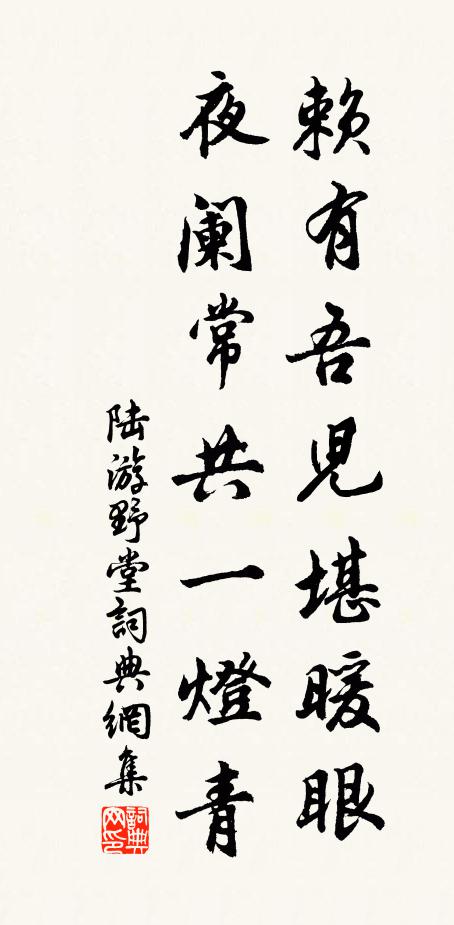 賴有吾児堪暖眼
夜阑常共一燈青
陆游野堂詞典網集
詞典
网印